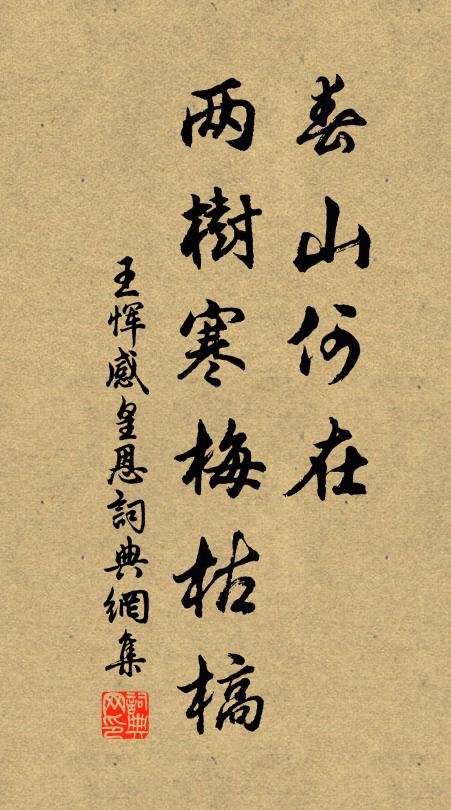 春山何在
两樹寒梅枯槁
王惲感皇恩詞典網集
詞典网印